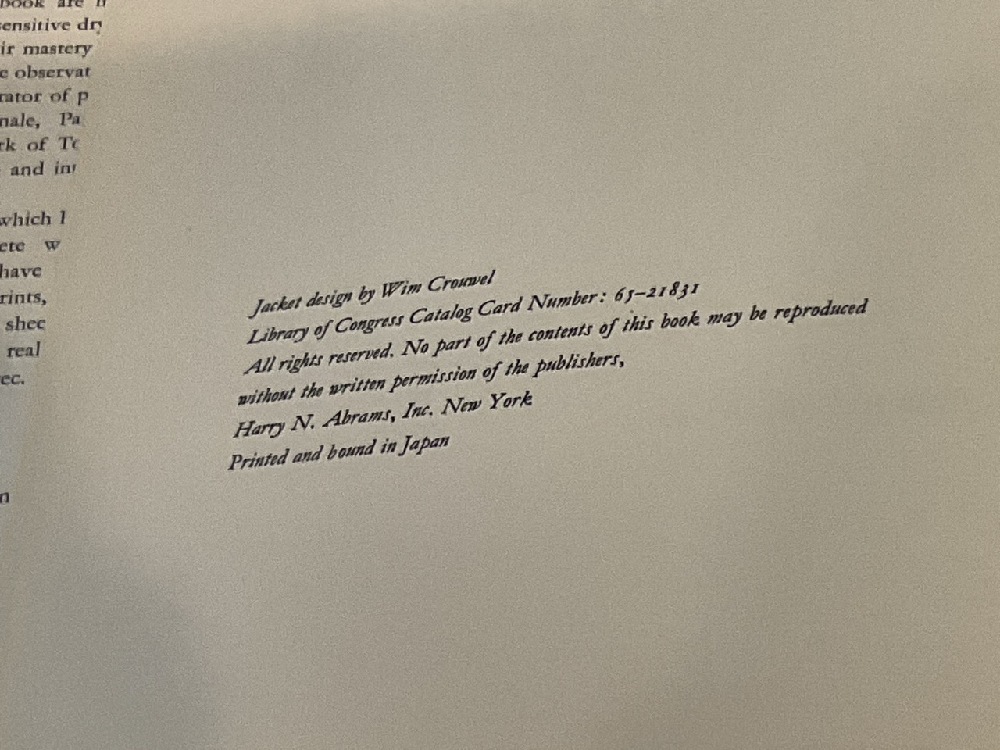 book are
sensitive
ir mastery
e observat
rator of p
nale, Pa
rk of
and
which
ete w
have
rints,
shee
real
ec.
n
Jacket design by Wim Crouwel
Library of Congress Catalog Card Number: 65-21831
All rights reserved. No part of the contents of this book may be reproduced
without the written permission of the publishers,
Harry N. Abrams, Inc. New York
Printed and bound in Japan